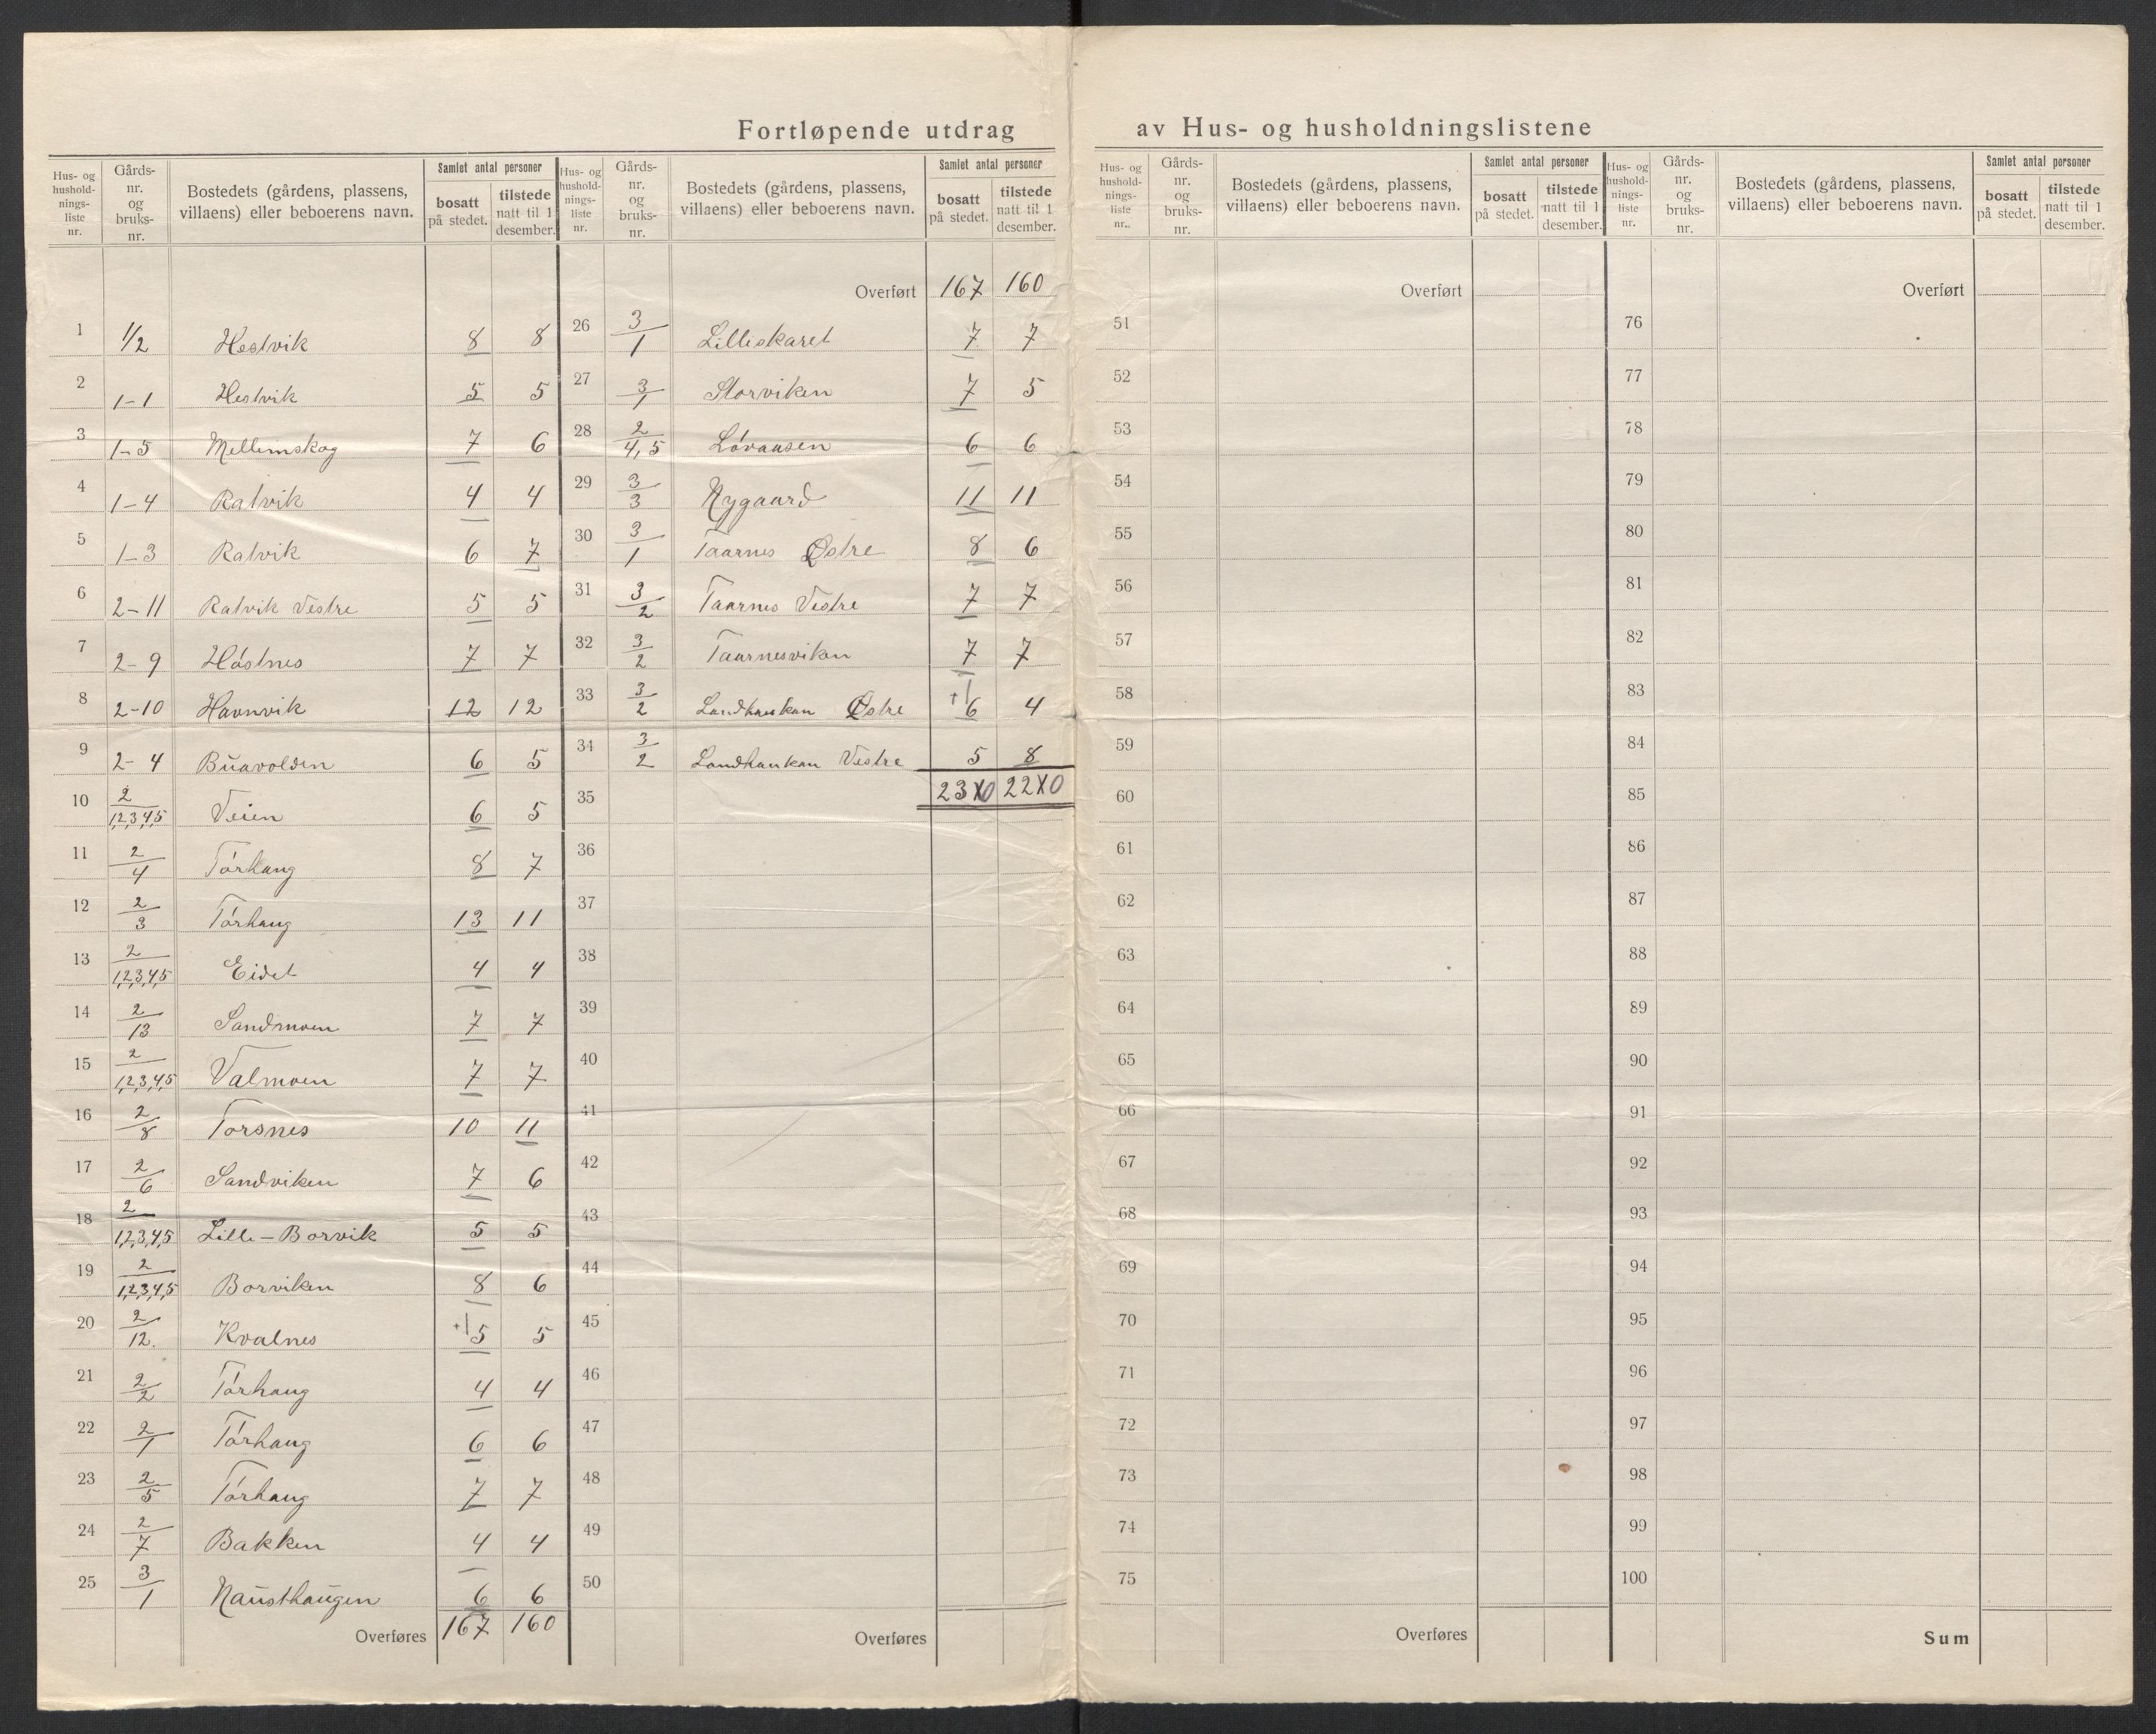 Fortløpende utdrag av Hus- og husholdningslistene
Hus- og husholdningsliste nr. | Gårdsnr. og bruksnr. | Bostedets (gårdens, plassens, villaens) eller beboerens navn. | Samlet antal personer | bosatt på stedet. | tilstede natt til 1 desember.
1 1/2 Hestvik 8 8
2 1-1 Hestvik 5 5
3 1-5 Mellemskog 7 6
4 1-4 Ratvik 4 4
5 1-3 Ratvik 6 7
6 2-11 Ratvik Vestre 5 5
7 2-9 Höstnes 7 7
8 2-10 Havnvik 12 12
9 2-4 Buavolden 6 5
10 2/1,2,3,4,5 Veien 6 5
11 2/4 Törhaug 8 7
12 2/3 Törhaug 13 11
13 2/1,2,3,4,5 Eidet 4 4
14 2/13 Sandmoen 7 7
15 2/1,2,3,4,5 Valmoen 7 7
16 2/8 Torsnes 10 11
17 2/6 Sandviken 7 6
18 2/1,2,3,4,5 Lille-Borvik 5 5
19 2/1,2,3,4,5 Borviken 8 6
20 2/12. Kvalnes +1 5 5
21 2/2 Törhaug 4 4
22 2/1 Törhaug 6 6
23 2/5 Törhaug 7 7
24 2/7 Bakken 4 4
25 3/1 Nausthaugen 6 6
Overføres 167 160
Hus- og husholdningsliste nr. | Gårdsnr. og bruksnr. | Bostedets (gårdens, plassens, villaens) eller beboerens navn. | Samlet antal personer | bosatt på stedet. | tilstede natt til 1 desember.
Overført 167 160
26 3/1 Lilleskaret 7 7
27 3/1 Storviken 7 5
28 2/4,5 Lövaasen 6 6
29 3/3 Nygaard 11 11
30 3/1 Taarnes Østre 8 6
31 3/2 Taarnes Vestre 7 7
32 3/2 Taarnesviken 7 7
33 3/2 Østre +1 6 4
34 3/2 Vestre 5 8
35 23 0 22 0
36
37
38
39
40
41
42
43
44
45
46
47
48
49
50
Overføres
Hus- og husholdningsliste nr. | Gårdsnr. og bruksnr. | Bostedets (gårdens, plassens, villaens) eller beboerens navn. | Samlet antal personer | bosatt på stedet. | tilstede natt til 1 desember.
Overført
51
52
53
54
55
56
57
58
59
60
61
62
63
64
65
66
67
68
69
70
71
72
73
74
75
Overføres
Hus- og husholdningsliste nr. | Gårdsnr. og bruksnr. | Bostedets (gårdens, plassens, villaens) eller beboerens navn. | Samlet antal personer | bosatt på stedet. | tilstede natt til 1 desember.
Overført
76
77
78
79
80
81
82
83
84
85
86
87
88
89
90
91
92
93
94
95
96
97
98
99
100
Sum